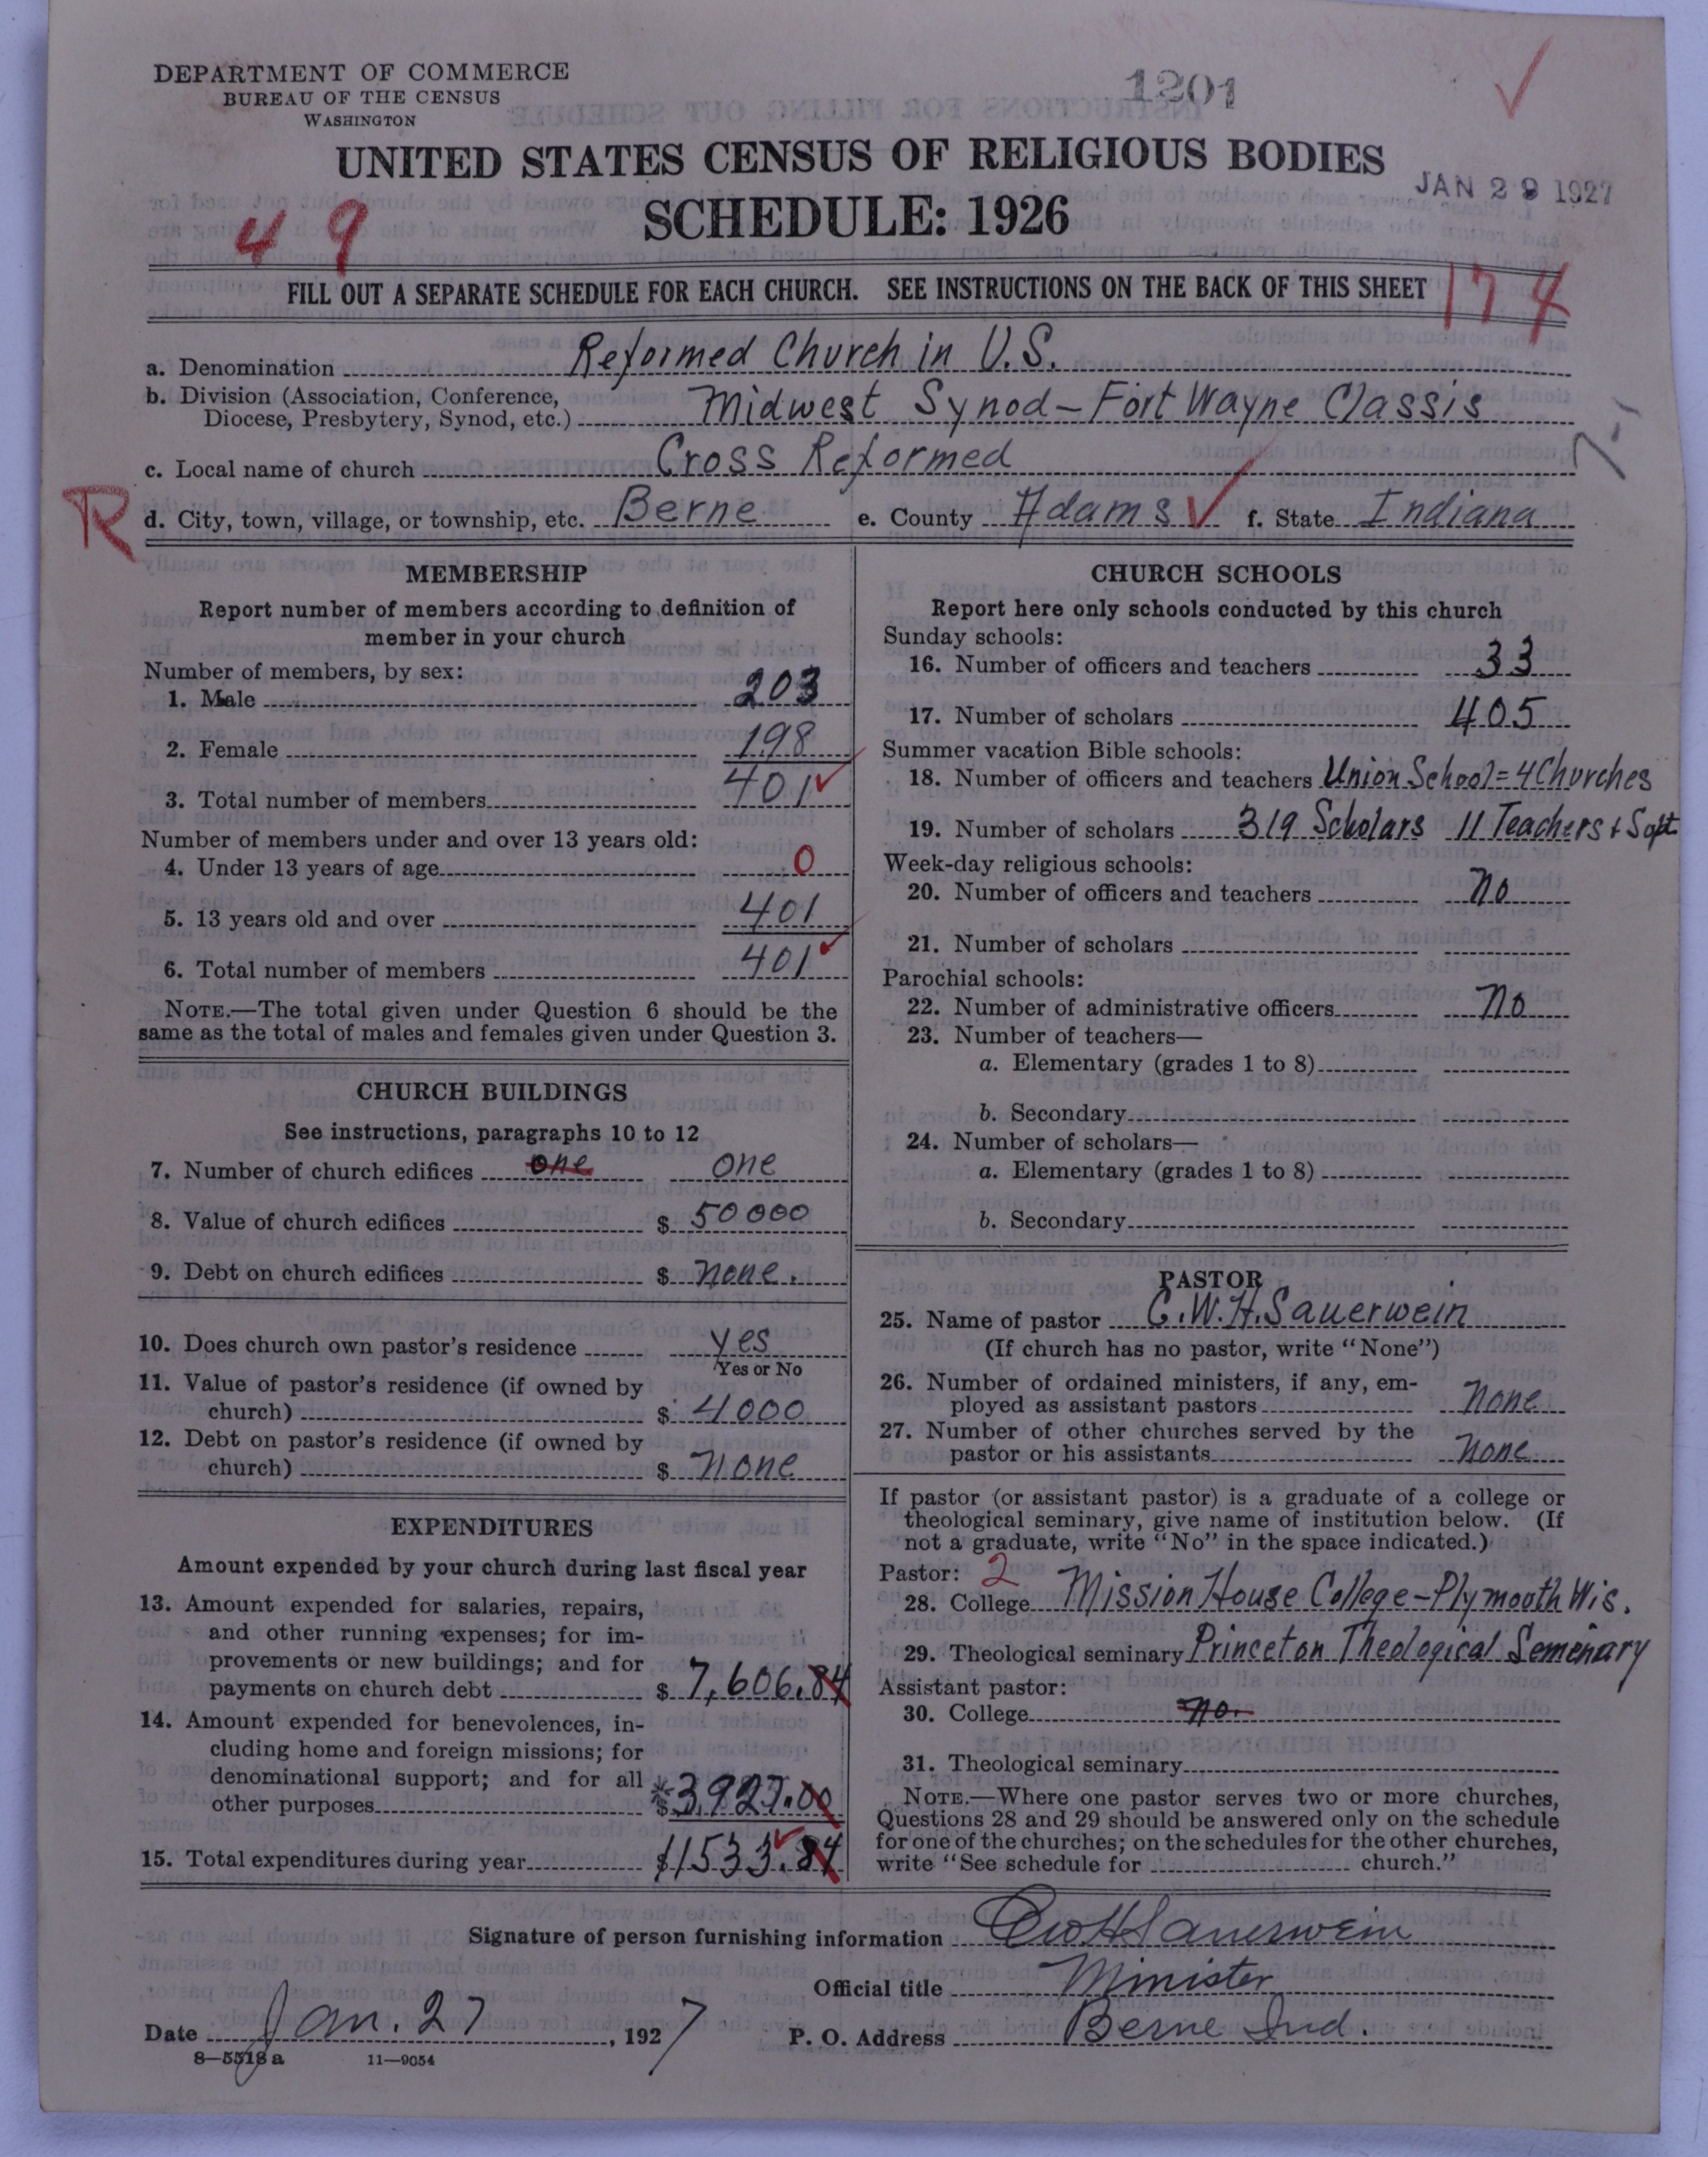 DEPARTMENT OF COMMERCE
BUREAU OF THE CENSUS
WASHINGTON
1201
UNITED STATES CENSUS OF RELIGIOUS BODIES
JAN 29 1927
SCHEDULE: 1926
49
FILL OUT A SEPARATE SCHEDULE FOR EACH CHURCH. SEE INSTRUCTIONS ON THE BACK OF THIS SHEET
174
a. Denomination Reformed Church in U.S.
b. Division (Association, Conference,
Diocese, Presbytery, Synod, etc.) Midwest Synod-Fort Wayne Classis
c. Local name of church Cross Reformed
R
d. City, town, village, or township, etc. Berne e. County Adams f. State Indiana
MEMBERSHIP
Report number of members according to definition of
member in your church
Number of members, by sex:
1. Male 203
2. Female 198
3. Total number of members 401
Number of members under and over 13 years old:
4. Under 13 years of age 0
5. 13 years old and over 401
6. Total number of members 401
NOTE.—The total given under Question 6 should be the
same as the total of males and females given under Question 3.
CHURCH BUILDINGS
See instructions, paragraphs 10 to 12
7. Number of church edifices one one
8. Value of church edifices $ 50000
9. Debt on church edifices $ none.
10. Does church own pastor's residence yes
Yes or No
11. Value of pastor's residence (if owned by
church) $ 4000
12. Debt on pastor's residence (if owned by
church) $ none
EXPENDITURES
Amount expended by your church during last fiscal year
13. Amount expended for salaries, repairs,
and other running expenses; for im-
provements or new buildings; and for
payments on church debt $ 7,606.84
14. Amount expended for benevolences, in-
cluding home and foreign missions; for
denominational support; and for all
other purposes $ 3,927.00
15. Total expenditures during year $11533.84
CHURCH SCHOOLS
Report here only schools conducted by this church
Sunday schools:
16. Number of officers and teachers 33
17. Number of scholars 405
Summer vacation Bible schools:
18. Number of officers and teachers Union School = 4 Churches
19. Number of scholars 319 Scholars 11 Teachers + Supt
Week-day religious schools:
20. Number of officers and teachers no
21. Number of scholars
Parochial schools:
22. Number of administrative officers no
23. Number of teachers—
a. Elementary (grades 1 to 8)
b. Secondary
24. Number of scholars—
a. Elementary (grades 1 to 8)
b. Secondary
PASTOR
25. Name of pastor C.W.H. Sauerwein
(If church has no pastor, write "None")
26. Number of ordained ministers, if any, em-
ployed as assistant pastors none
27. Number of other churches served by the
pastor or his assistants none
If pastor (or assistant pastor) is a graduate of a college or
theological seminary, give name of institution below. (If
not a graduate, write "No" in the space indicated.)
Pastor: 2
28. College Mission House College-Plymouth Wis.
29. Theological seminary Princeton Theological Semenary
Assistant pastor:
30. College no.
31. Theological seminary
NOTE.—Where one pastor serves two or more churches,
Questions 28 and 29 should be answered only on the schedule
for one of the churches; on the schedules for the other churches,
write "See schedule for church."
Signature of person furnishing information CWH Sauerwein
Official title Minister
Date Jan. 27, 1927 P. O. Address Berne Ind.
8—5518 a 11—9054